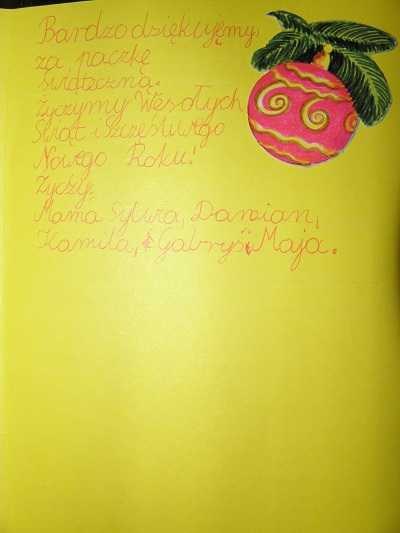 Bardzo dziękujemy,
za paczkę
świateczną.
Życzymy Wesołych
Świąt i szczęśliwego
Nowego Roku!
Życzy,
Mama Sylwia, Damian,
Kamila, Gabryś i Maja.